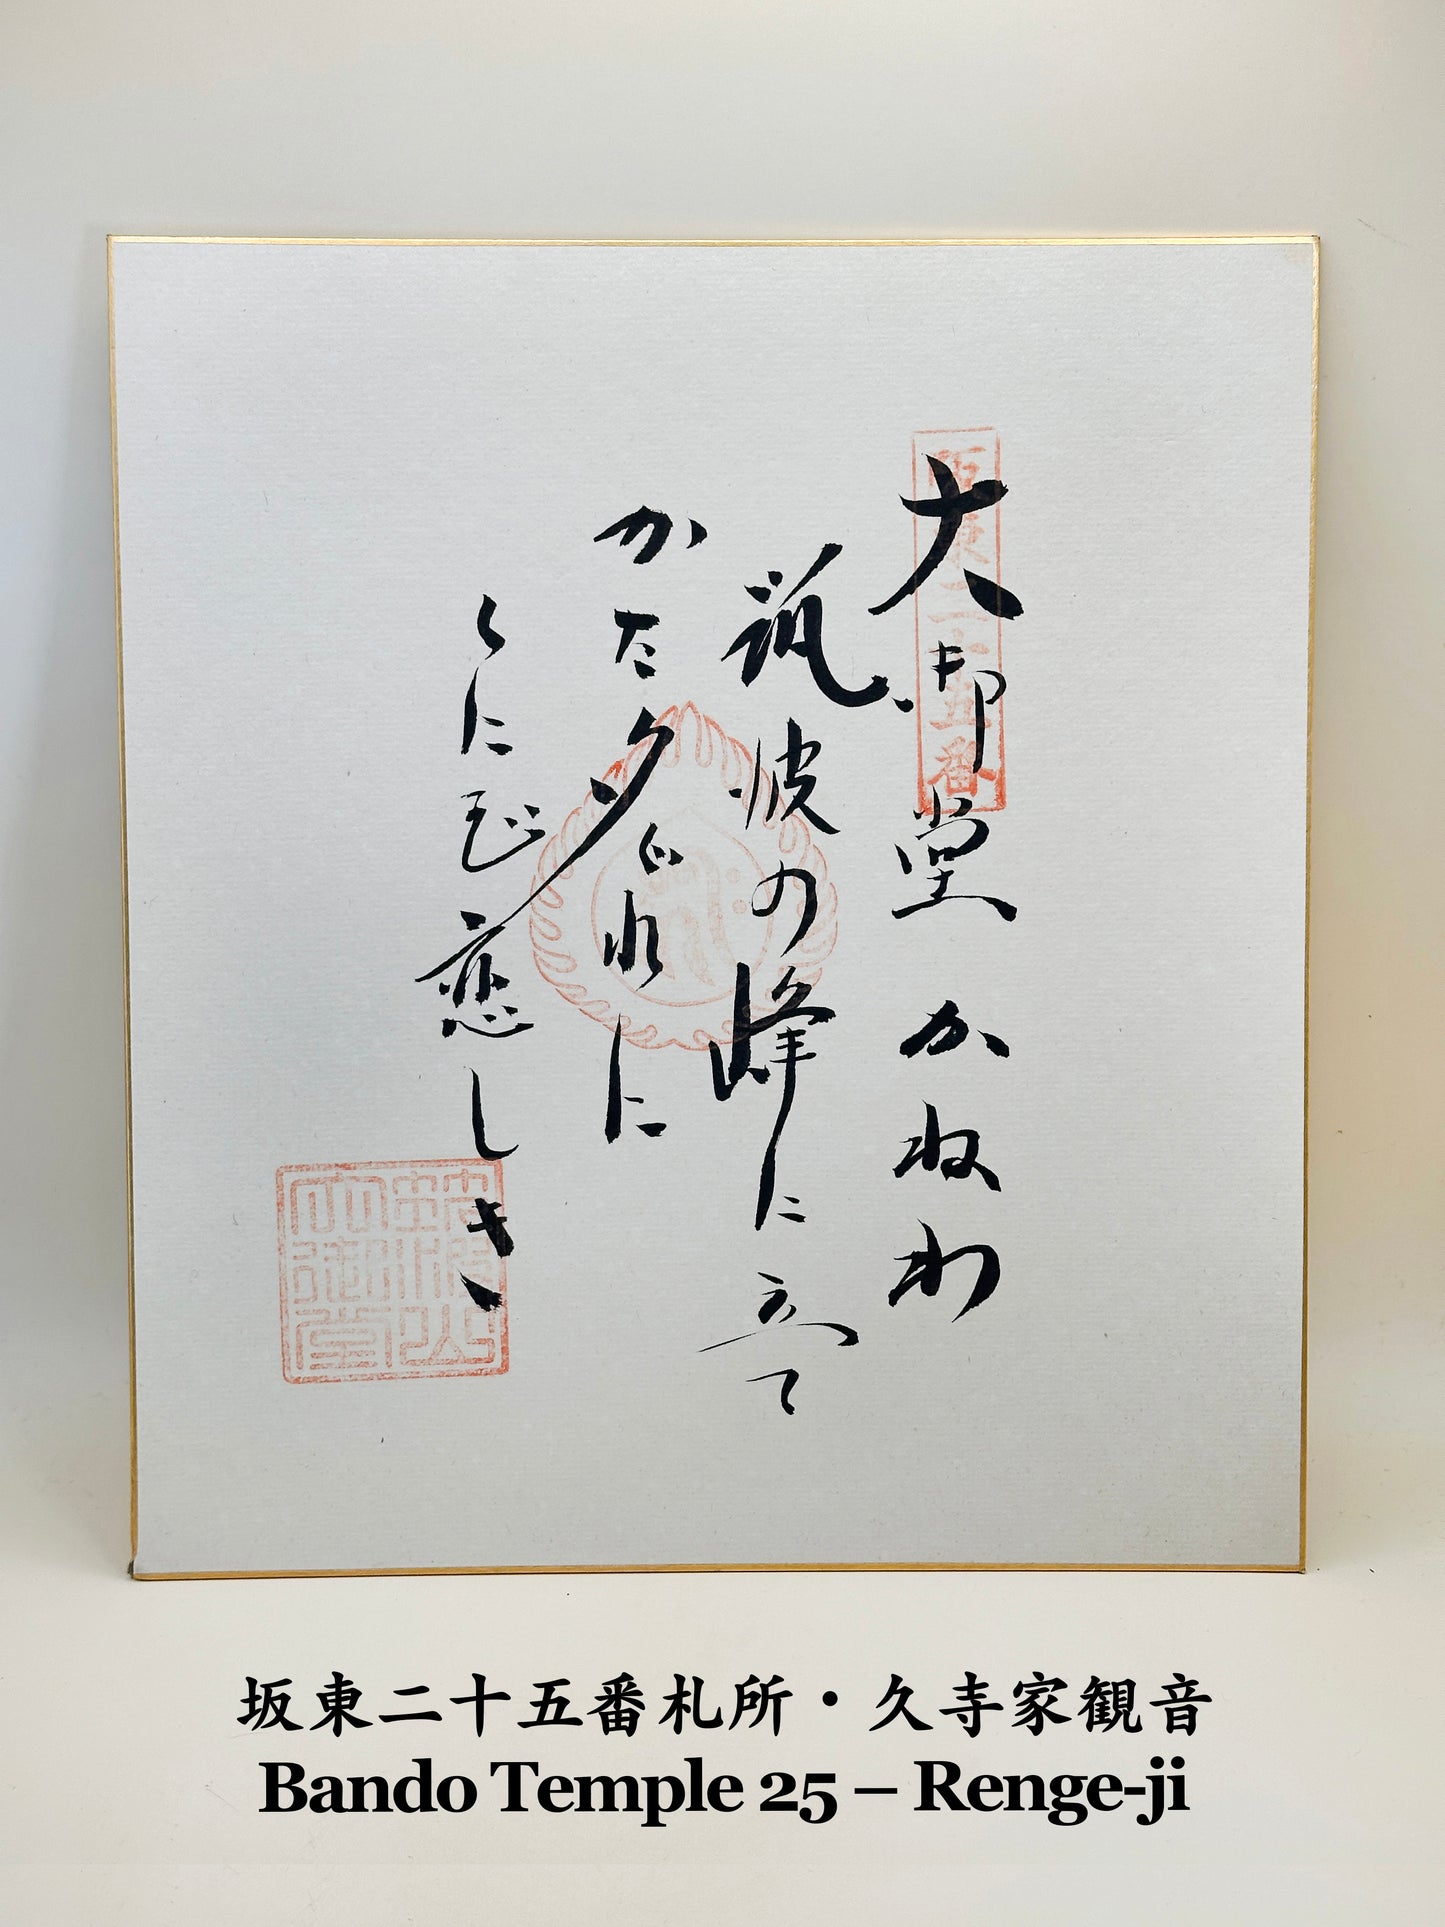 阪東二十五番
大御堂かねわ
筑波の峰に立て
かた夕ぐれに
くにぞ恋しき
筑波山
大御堂
坂東二十五番札所・久寺家観音
Bando Temple 25 – Renge-ji